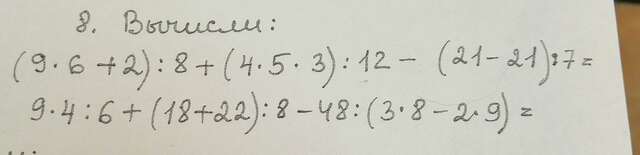 8. Вычисли:
(9·6+2):8+(4·5·3):12-(21-21):7=
9·4:6+(18+22):8-48:(3·8-2·9)=